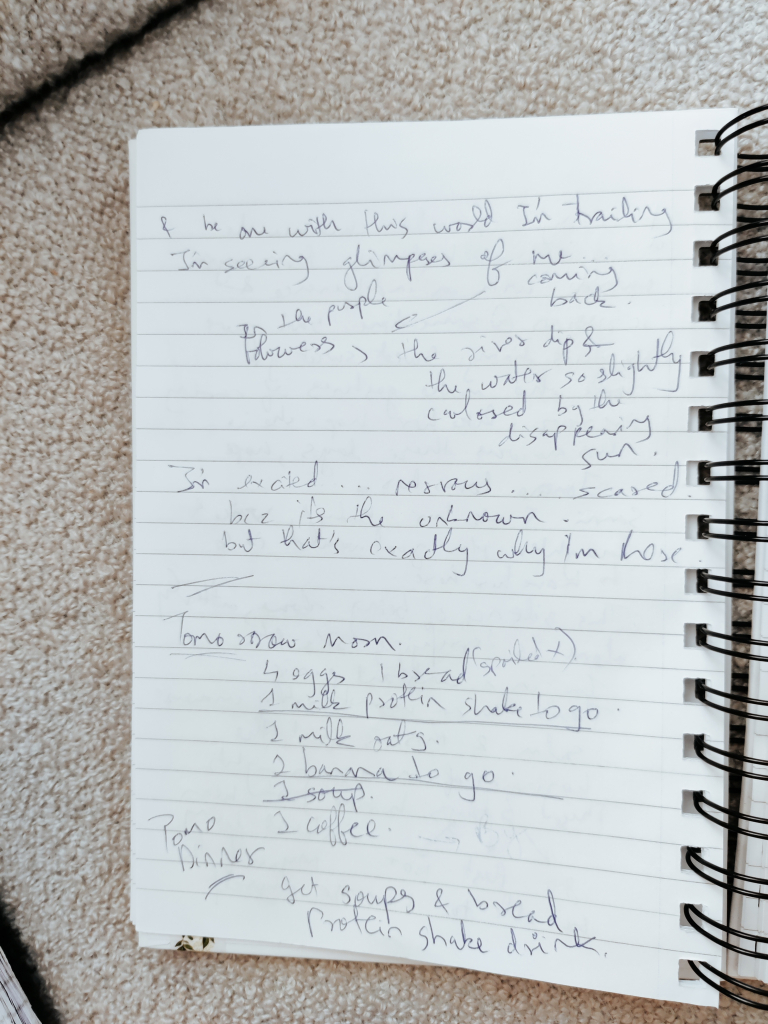 & be one with this world I'm trailing
I'm seeing glimpses of me...
coming
back.
In the purple
flowers, the river dip &
the water so slightly
colored by the
disappearing
sun.
I'm excited ... nervous .... scared.
bcz its the unknown.
but that's exactly why I'm those.
Tomorrow morn.
4 eggs 1 bread (spoiled x)
1 milk protein shake to go.
1 milk oats.
2 banna to go.
1 soup.
1 coffee.
Tomo
Dinner
get soups & bread
Protein shake drink.